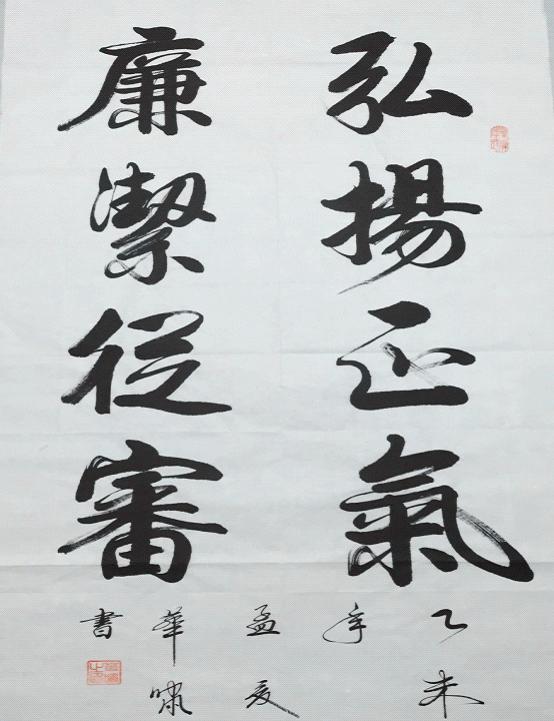 弘揚正氣
廉潔從審
乙未
年
孟夏
華嘯
書